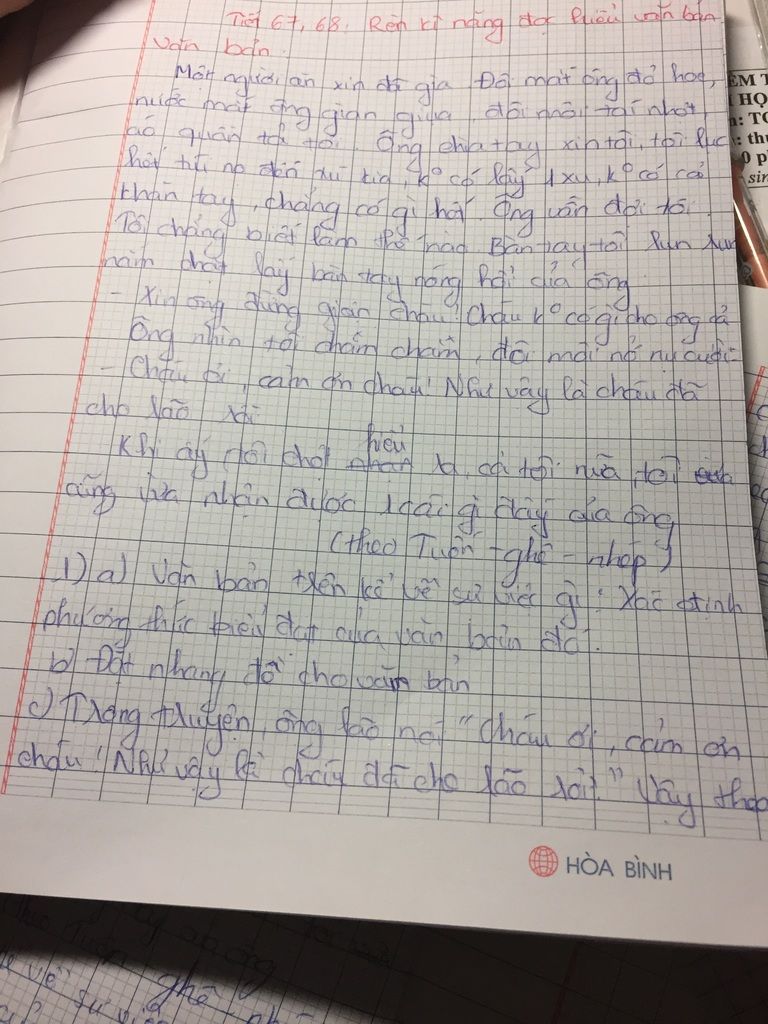 Tiết 67, 68. Rèn kĩ năng đọc hiểu văn bản
văn bản.
Một người ăn xin đã già Đôi mắt ông đỏ hoe,
nước mắt ông giàn giụa đôi môi tái nhợt,
áo quần tả tơi. Ông chìa tay xin tôi, tôi lục
hết túi nọ đến túi kia, k° có lấy 1 xu, k° có cả
khăn tay, chẳng có gì hết. Ông vẫn đợi tôi.
Tôi chẳng biết làm thế nào. Bàn tay tôi run run
nắm chặt lấy bàn tay nóng hổi của ông
- Xin ông đừng giận cháu! Cháu k° có gì cho ông cả
Ông nhìn tôi chăm chăm, đôi môi nở nụ cười
- Cháu ơi, cảm ơn cháu! Như vậy là cháu đã
cho lão rồi
Khi ấy tôi chợt hiểu ra, cả tôi nữa, tôi
cũng vừa nhận được 1 cái gì đấy của ông
(theo Tuốc-ghê-nhép)
1) a) Văn bản trên kể về sự việc gì? Xác định
phương thức biểu đạt của văn bản đó.
b) Đặt nhang đề cho văn bản
c) Trong truyện, ông lão nói "Cháu ơi, cảm ơn
cháu! Như vậy là cháu đã cho lão rồi." Vậy theo
HÒA BÌNH
ghê